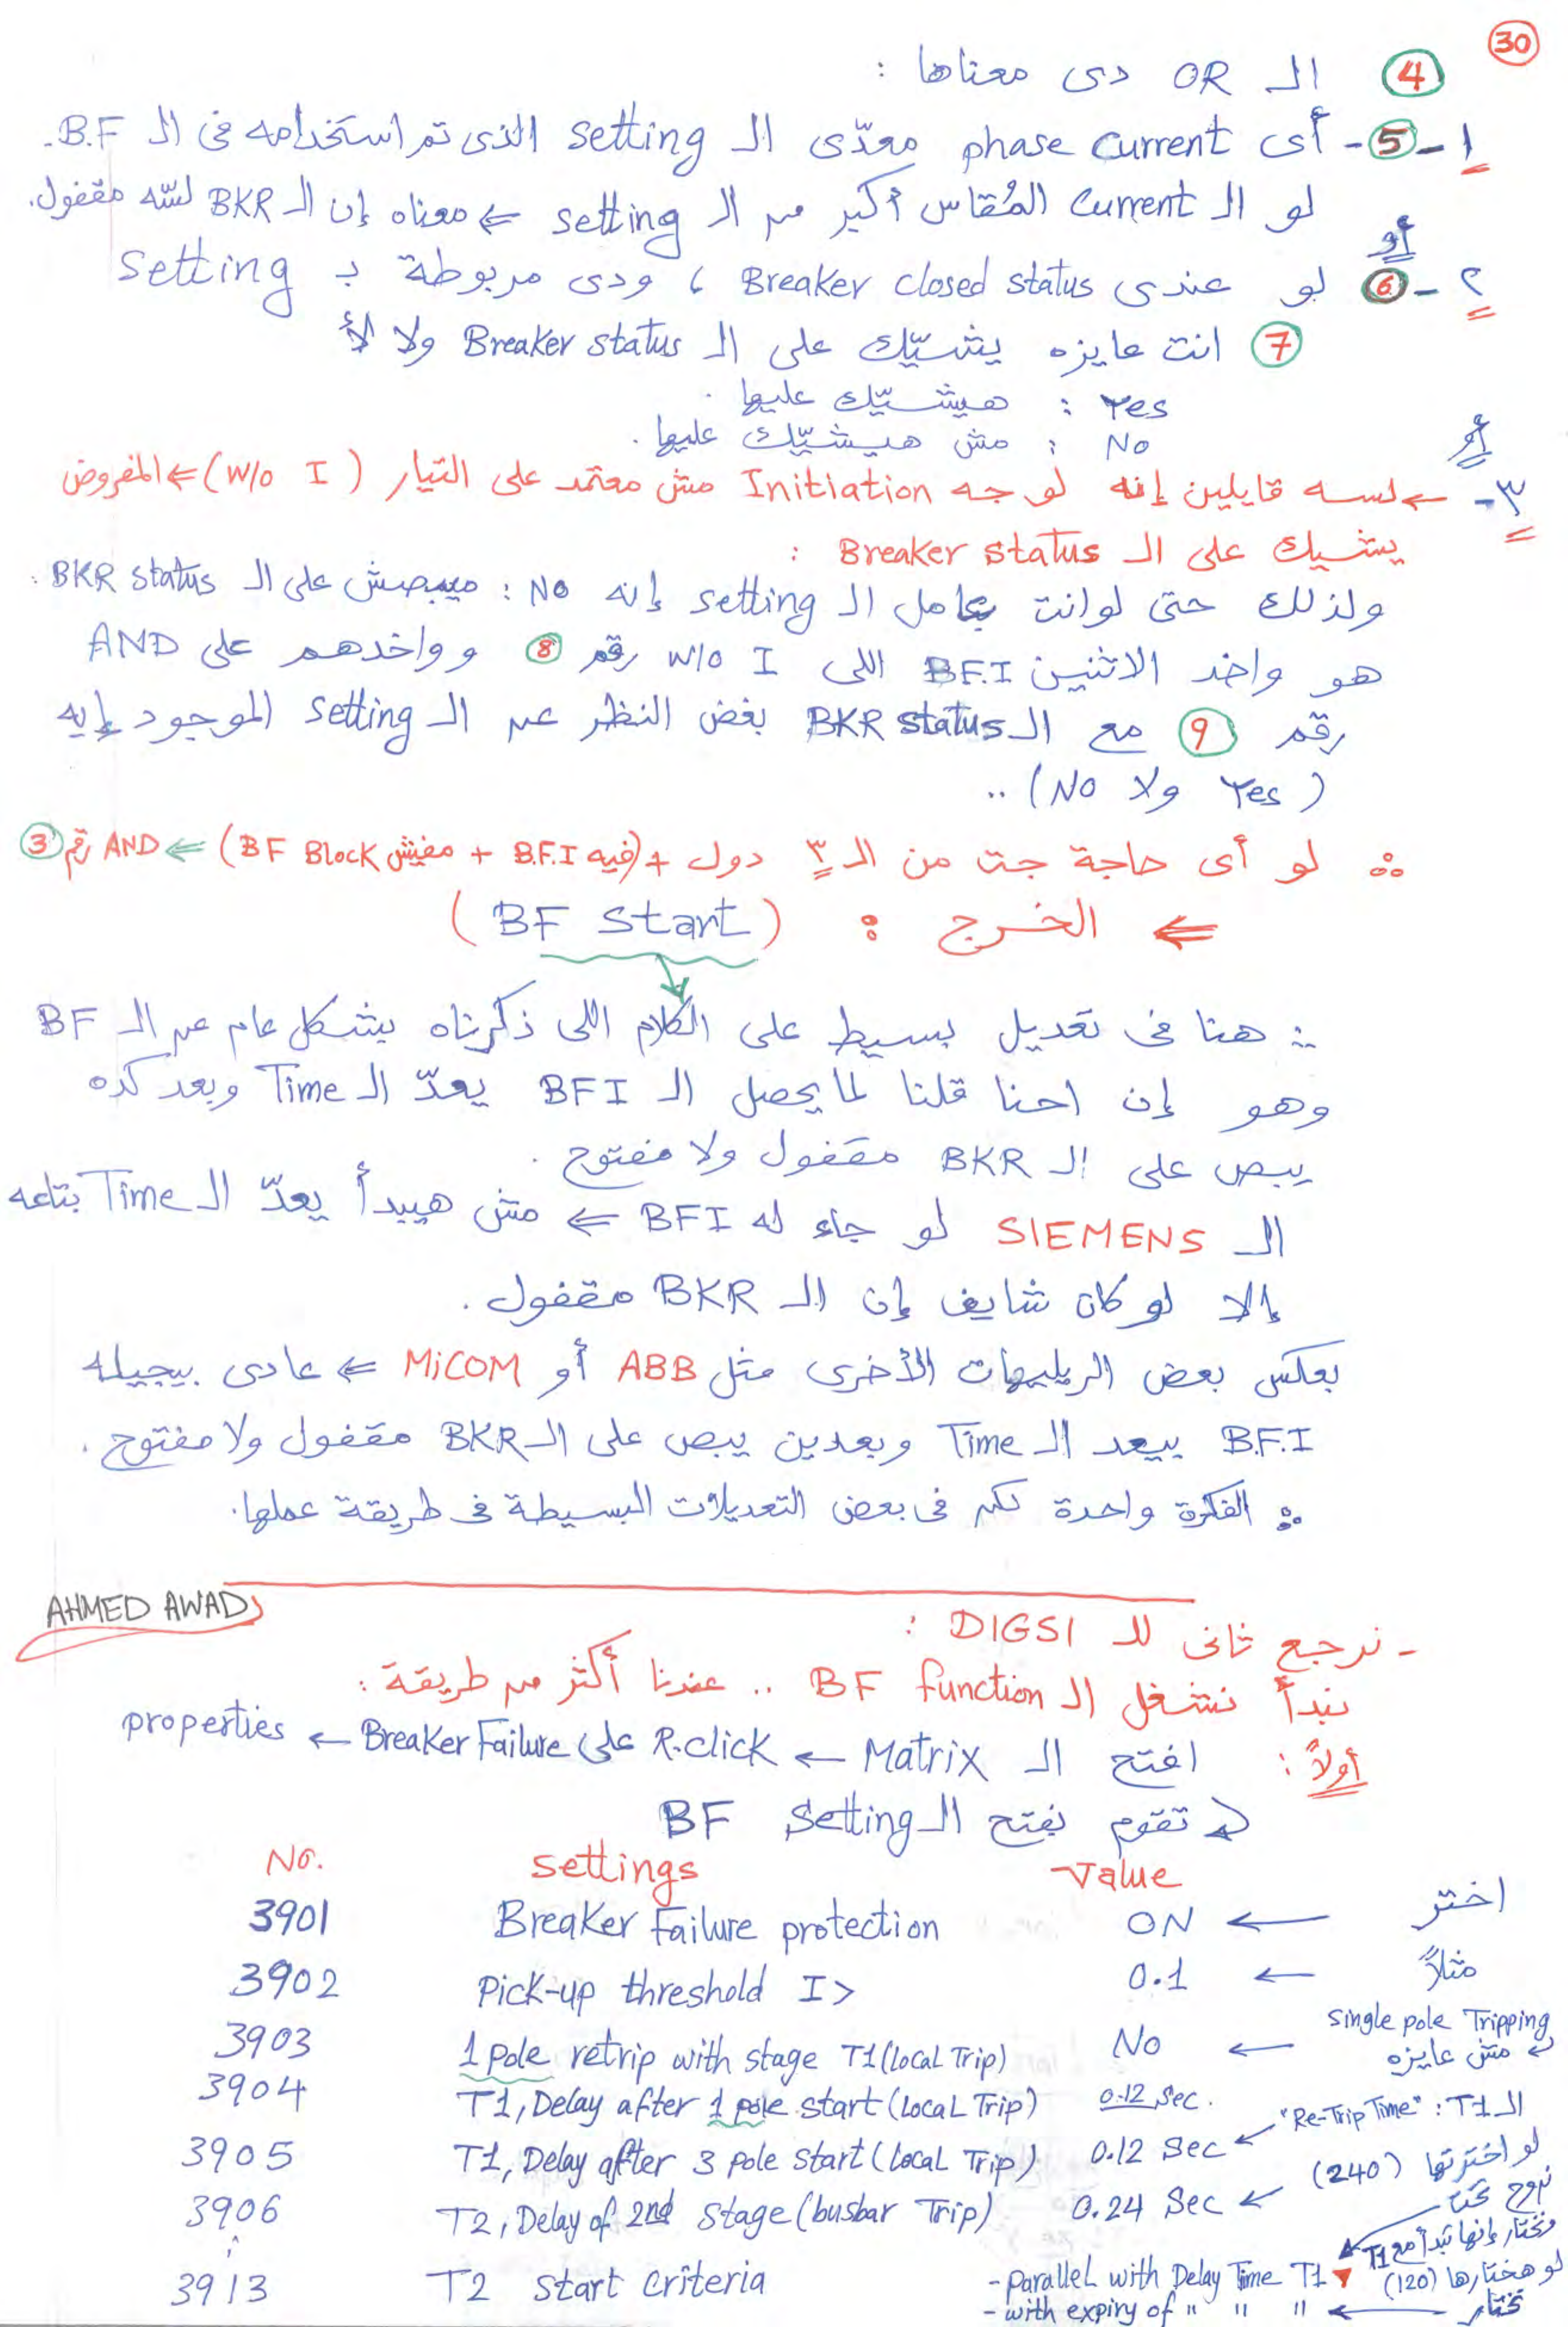 30
4 الـ OR دى معناها :
1 - 5 - أى phase current معدّى الـ setting الذى تم استخدامه فى الـ B.F.
لو الـ Current المُقاس أكبر من الـ setting ⇐ معناه إن الـ BKR لسّه مقفول.
أو
٢ - 6 لو عندى Breaker closed status ، ودى مربوطة بـ Setting
7 انت عايزه يشيّك على الـ Breaker status ولا لأ
Yes : هيشيّك عليها .
No : مش هيشيّك عليها .
أو
٣ - ← لسه قايلين إنه لو جه Initiation مش معتمد على التيار (W/o I) ⇐ المفروض
يشيك على الـ Breaker status :
ولذلك حتى لو انت عامل الـ setting إنه No : ميبصش على الـ BKR status .
هو واخد الاتنين B.F.I اللى w/o I رقم 8 وواخدهم على AND
رقم 9 مع الـ BKR status بغض النظر عن الـ setting الموجود إيه
(Yes ولا No) ..
∴ لو أى حاجة جت من الـ ٣ دول + (فيه B.F.I + مفيش BF Block) ⇐ AND رقم 3
⇐ الخرج : (BF Start)
∴ هنا فى تعديل بسيط على الكلام اللى ذكرناه بشكل عام عن الـ BF
وهو إن احنا قلنا لما يحصل الـ BFI يعدّ الـ Time وبعد كده
يبص على الـ BKR مقفول ولا مفتوح .
الـ SIEMENS لو جاء له BFI ⇐ مش هيبدأ يعدّ الـ Time بتاعه
إلا لو كان شايف إن الـ BKR مقفول .
بعكس بعض الريليهات الأخرى مثل ABB أو MiCOM ⇐ عادى بيجيله
B.F.I بيعد الـ Time وبعدين يبص على الـ BKR مقفول ولا مفتوح .
∴ الفكرة واحدة لكن فى بعض التعديلات البسيطة فى طريقة عملها .
AHMED AWAD
- نرجع تانى للـ DIGSI :
نبدأ نشغل الـ BF function .. عندنا أكتر من طريقة :
أولاً : افتح الـ Matrix ← R.click على Breaker Failure ← properties
تقوم بفتح الـ BF Setting
No. settings Value
3901 Breaker Failure protection ON ← اختر
3902 Pick-up threshold I> 0.1 ← مثلاً
3903 1 pole retrip with stage T1 (local Trip) No ← single pole Tripping مش عايزه
3904 T1, Delay after 1 pole start (local Trip) 0.12 Sec.
3905 T1, Delay after 3 pole start (local Trip) 0.12 Sec ← "Re-Trip Time" : الـ T1
3906 T2, Delay of 2nd stage (busbar Trip) 0.24 Sec ← لو اخترتها (240)
نروح تحت
ونختار إنها تبدأ مع T1
3913 T2 start criteria - parallel with Delay Time T1 لو هختارها (120)
- with expiry of " " " ← نختار